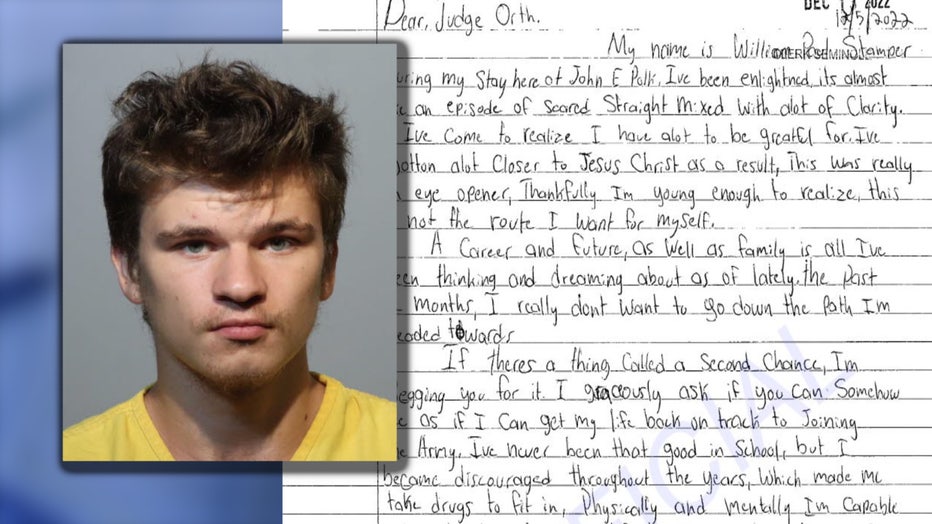 Dear, Judge Orth.
DEC 2022
12/5/2022
My name is William Stamper
my Stay here at John E Polk, Ive been enlightned, its almost
an episode of Scared Straight Mixed With alot of Clarity.
Ive Come to realize I have alot to be greatful for. Ive
alot Closer to Jesus Christ as a result, This was really
eye opener, Thankfully Im young enough to realize, this
not the route I want for myself.
A Career and future, as Well as family is all Ive
thinking and dreaming about as of lately. the Past
months, I really dont want to go down the Path Im
towards
If theres a thing Called a Second Chance, Im
you for it. I graceously ask if you Can Somehow
as if I Can get my life back on track to Joining
Army. Ive never been that good in School, but I
became discouraged throughout the years, Which made me
take drugs to fit in, Physically and mentally Im Capable